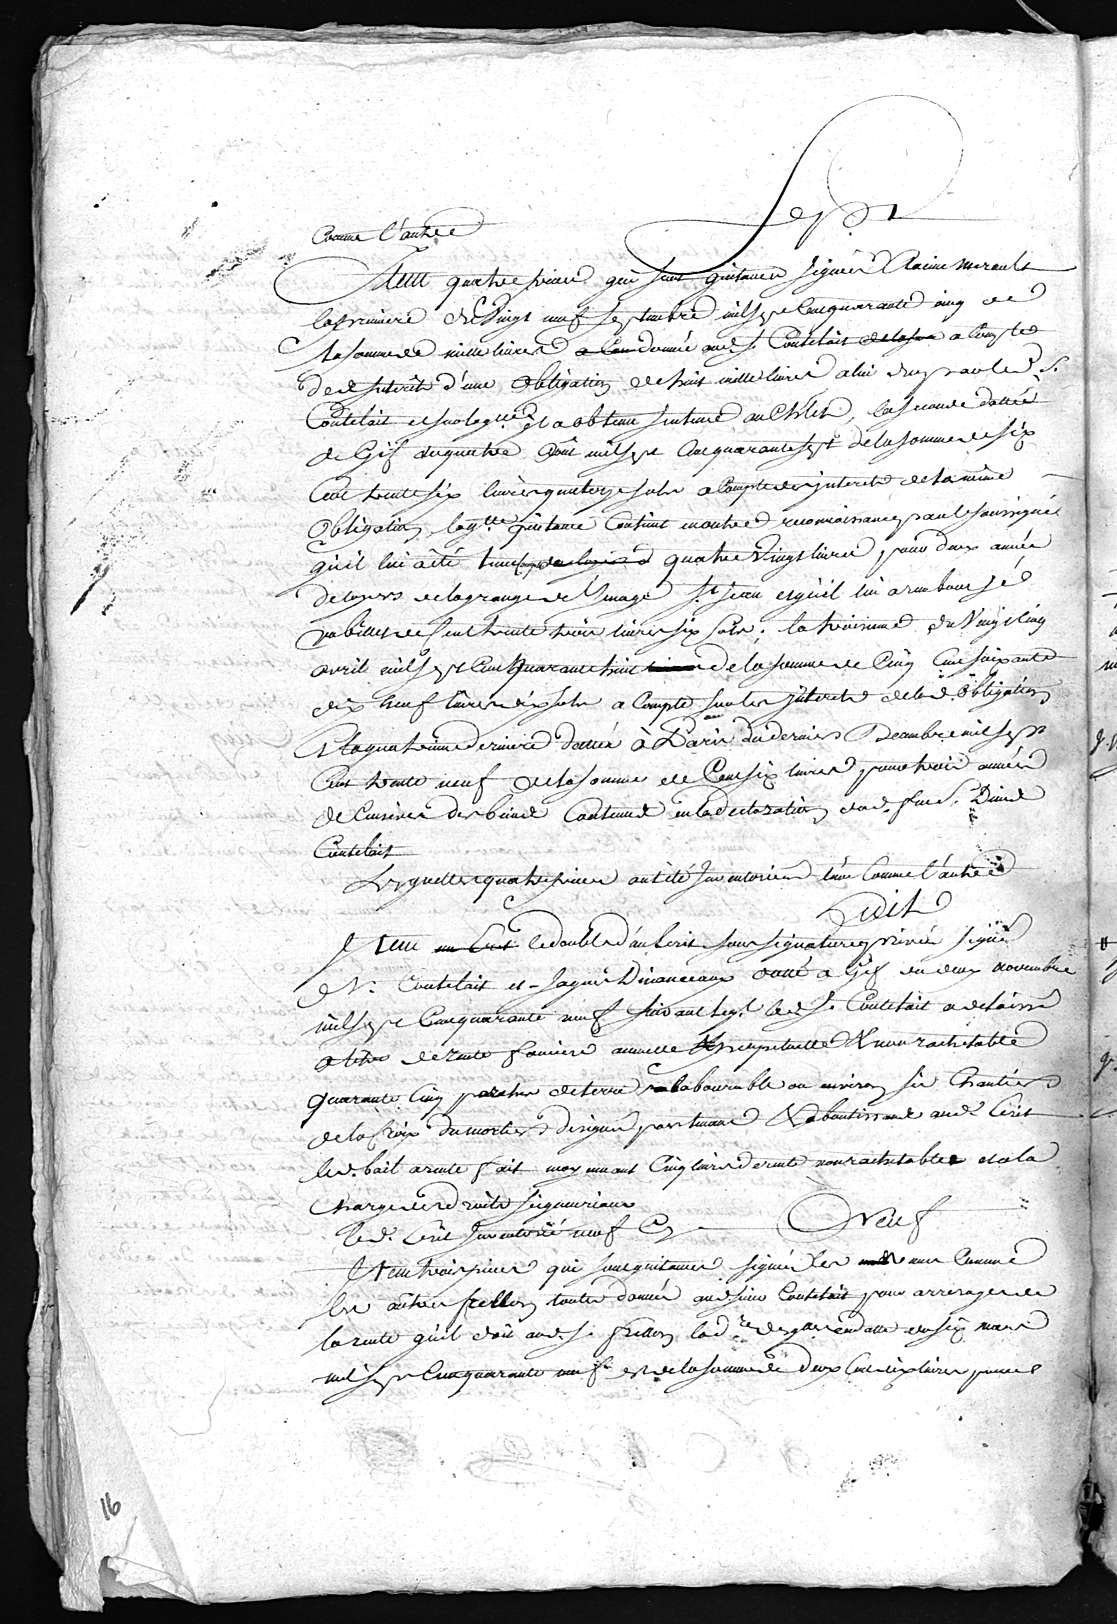 Comme l'autre
Sept
Item quatre pieces qui sont quittances signées Racine Merault
la premiere du Vingt neuf septembre mil sept Cent quarante cinq de
la somme de mille livres donnée aud. S. Coutelait a Compte
des Interets d'une Obligation de huit mille livres a lui due par led. S.
Coutelait et pour laquelle il a obtenu sentence au Ch.let, la seconde dattée
de Gif du quatre Aout mil sept Cent quarante sept de la somme de six
Cent trente six livres quatorze sols a Compte des interets de la même
Obligation, laq.lle quittance Contient en outre reconnoissance par le soussigné
qu'il lui a été tenu Compte quatre Vingt livres pour deux années
de loyers de la grange de S.t Jean et qu'il lui a remboursé
par billet de Cent trente trois livres six sols. la troisieme du Vingt Cinq
avril mil sept Cent quarante huit de la somme de Cinq Cent soixante
dix neuf livres dix sols a Compte sur les Interets de lad. Obligation
Et la quatrieme derniere dattée à Paris du dernier Decembre mil sept
Cent trente neuf de la somme de Cent six livres pour trois années
de Censives des biens Contenus en la declaration dud. feu S. Denis
Coutelait
Lesquelles quatre pieces ont été Inventoriées l'une Comme l'autre
Huit
Item le double d'un Ecrit sous signatures privées signé
D N. Coutelait et Jaques Dimanceaux datté a Gif du deux novembre
mil sept Cent quarante neuf suivant leq.l led. S. Coutelait a delaissé
a titre de rente fonciere annuelle perpetuelle & non rachetable
quarante Cinq perches de terre labourable ou environ sis Chantier
de la Croix du mortier designé par tenans & aboutissans aud. Ecrit
led. bail a rente fait moyennant Cinq livres de rente non rachetable et a la
charge des droits seigneuriaux
Led. Ecrit Inventorié neuf Cy Neuf
Item trois pieces qui sont quittances signées les unes Comme
les autres frellon toutes données aud. sieur Coutelait pour arrerages de
la rente qu'il doit aud. S. frellon la d.re desquelles en datte du six mars
mil sept Cent quarante neuf est de la somme de deux Cent dix livres pour
16